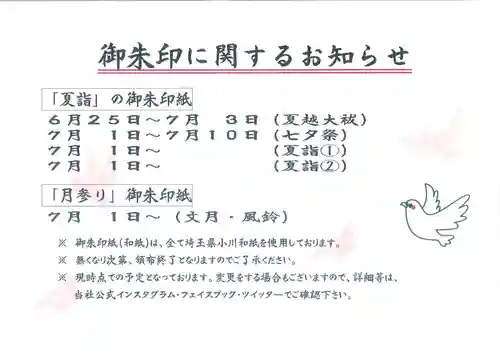 御朱印に関するお知らせ
「夏詣」の御朱印紙
6月25日～7月　3日(夏越大祓)
7月　1日～7月10日(七夕祭)
7月　1日～　　　　(夏詣①)
7月　1日～　　　　(夏詣②)
「月参り」御朱印紙
7月　1日～（文月・風鈴）
※ 御朱印紙(和紙)は、全て埼玉県小川和紙を使用しております。
※ 無くなり次第、頒布終了となりますのでご了承ください。
※ 現時点での予定となっております。変更をする場合もございますので、詳細等は、
当社公式インスタグラム・フェイスブック・ツイッターでご確認下さい。